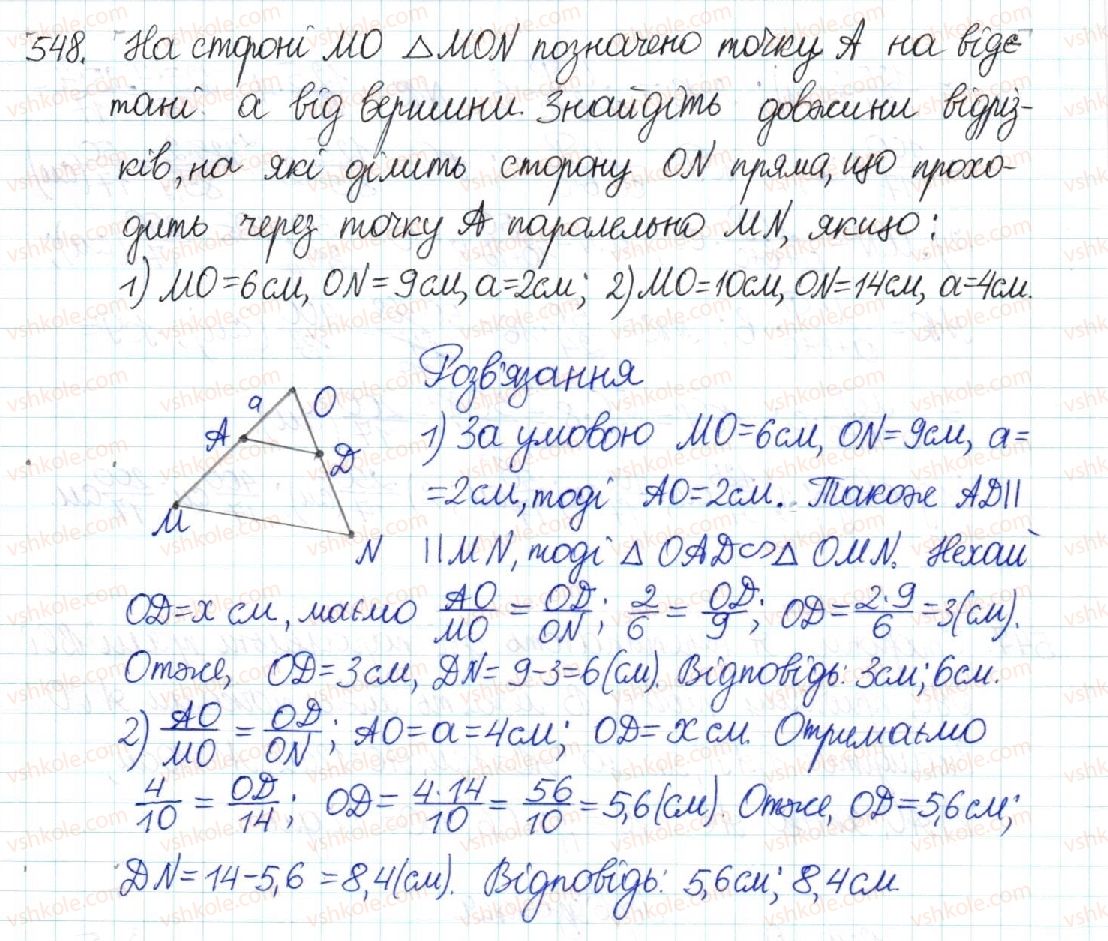 548. На стороні MO △MON позначено точку A на відс
тані a від вершини. Знайдіть довжини відріз-
ків, на які ділить сторону ON пряма, що прохо-
дить через точку A паралельно MN, якщо:
1) MO=6см, ON=9см, a=2см; 2) MO=10см, ON=14см, a=4см.
Розв'язання
a O
A D
M
N
1) За умовою MO=6см, ON=9см, a=
=2см, тоді AO=2см. Також AD||
||MN, тоді △ OAD∽△ OMN. Нехай
OD=x см, маємо AO/MO = OD/ON; 2/6 = OD/9; OD= 2·9/6 =3(см).
Отже, OD=3см, DN=9-3=6(см). Відповідь: 3см; 6см.
2) AO/MO = OD/ON; AO=a=4см; OD=x см. Отримаємо
4/10 = OD/14; OD= 4·14/10 = 56/10 =5,6(см). Отже, OD=5,6см;
DN=14-5,6=8,4(см). Відповідь: 5,6см; 8,4см
vshkole.com